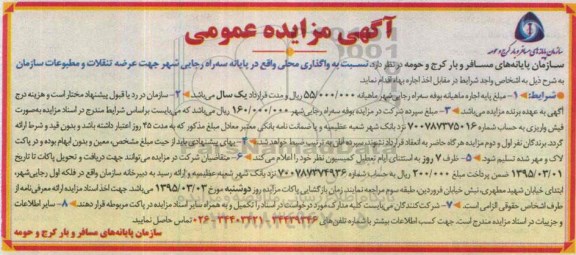 آگهی مزایده عمومی
سازمان پایانه‌های مسافر و بار کرج و حومه
سازمان پایانه‌های مسافر و بار کرج و حومه در نظر دارد، نسبت به واگذاری محلی واقع در پایانه سه‌راه رجایی شهر جهت عرضه تنقلات و مطبوعات سازمان
به شرح ذیل به اشخاص واجد شرایط در مقابل اخذ اجاره بهاء اقدام نماید.
شرایط: ۱- مبلغ پایه اجاره ماهیانه بوفه سه‌راه رجایی‌شهر ماهیانه ۵۵/۰۰۰/۰۰۰ ریال و مدت قرارداد یک سال می‌باشد ۲- سازمان در رد یا قبول پیشنهاد مختار است و هزینه درج
آگهی به عهده برنده مزایده می‌باشد ۳- مبلغ سپرده شرکت در مزایده بوفه سه‌راه رجایی‌شهر ۱۶۰/۰۰۰/۰۰۰ ریال می‌باشد که می‌بایست براساس شرایط مندرج در اسناد مزایده به‌صورت
فیش واریزی به حساب شماره ۷۰۰۷۸۷۳۷۵۰۱۶ نزد بانک شهر شعبه عظیمیه و یا ضمانت نامه بانکی معتبر معادل مبلغ مذکور که به مدت ۴۵ روز اعتبار داشته باشد و بدون قید و شرط ارائه
گردد. برندگان نفر اول و دوم مزایده هرگاه حاضر به انعقاد قرارداد نشوند، سپرده آنان به ترتیب ضبط خواهد شد ۴- بهای پیشنهادی باید از حیث مبلغ مشخص، معین و بدون ابهام بوده و در پاکت
لاک و مهر شده تسلیم شود ۵- ظرف ۷ روز به استثنای ایام تعطیل کمیسیون نظر خود را اعلام می‌کند ۶- متقاضیان شرکت در مزایده می‌توانند جهت دریافت و تحویل پاکات تا تاریخ
۱۳۹۵/۰۳/۰۱ ضمن پرداخت مبلغ ۲۰۰/۰۰۰ ریال به حساب شماره ۷۰۰۷۸۷۳۷۴۹۳۶ نزد بانک شهر شعبه عظیمیه و ارائه رسید به دبیرخانه سازمان واقع در فلکه اول رجایی‌شهر،
ابتدای خیابان شهید مطهری، نبش خیابان فروردین، طبقه سوم مراجعه نمایند. زمان بازگشایی پاکات مزایده روز دوشنبه مورخ ۱۳۹۵/۰۳/۰۳ می‌باشد. جهت اخذ اسناد مزایده ارائه معرفی‌نامه از
طرف اشخاص حقوقی الزامی است. ۷- شرکت‌کنندگان می‌بایست کلیه مدارک مورد درخواست در اسناد را تکمیل و به همراه سایر اسناد مزایده در پاکت مربوطه قرار دهند ۸- سایر اطلاعات
و جزییات در اسناد مزایده مندرج است. جهت کسب اطلاعات بیشتر با شماره تلفن‌های ۳۴۴۲۹۳۴۶ - ۳۴۴۰۳۴۲۱-۰۲۶ تماس حاصل نمایید.
سازمان پایانه‌های مسافر و بار کرج و حومه